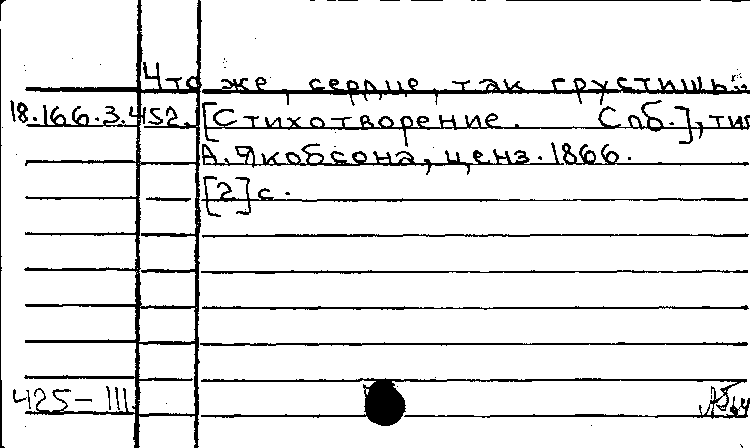 Что же, сердце, так грустишь...
18.166.3.452. [Стихотворение. Спб.], тип
А. Якобсона, ценз. 1866.
[2] с.
425-III